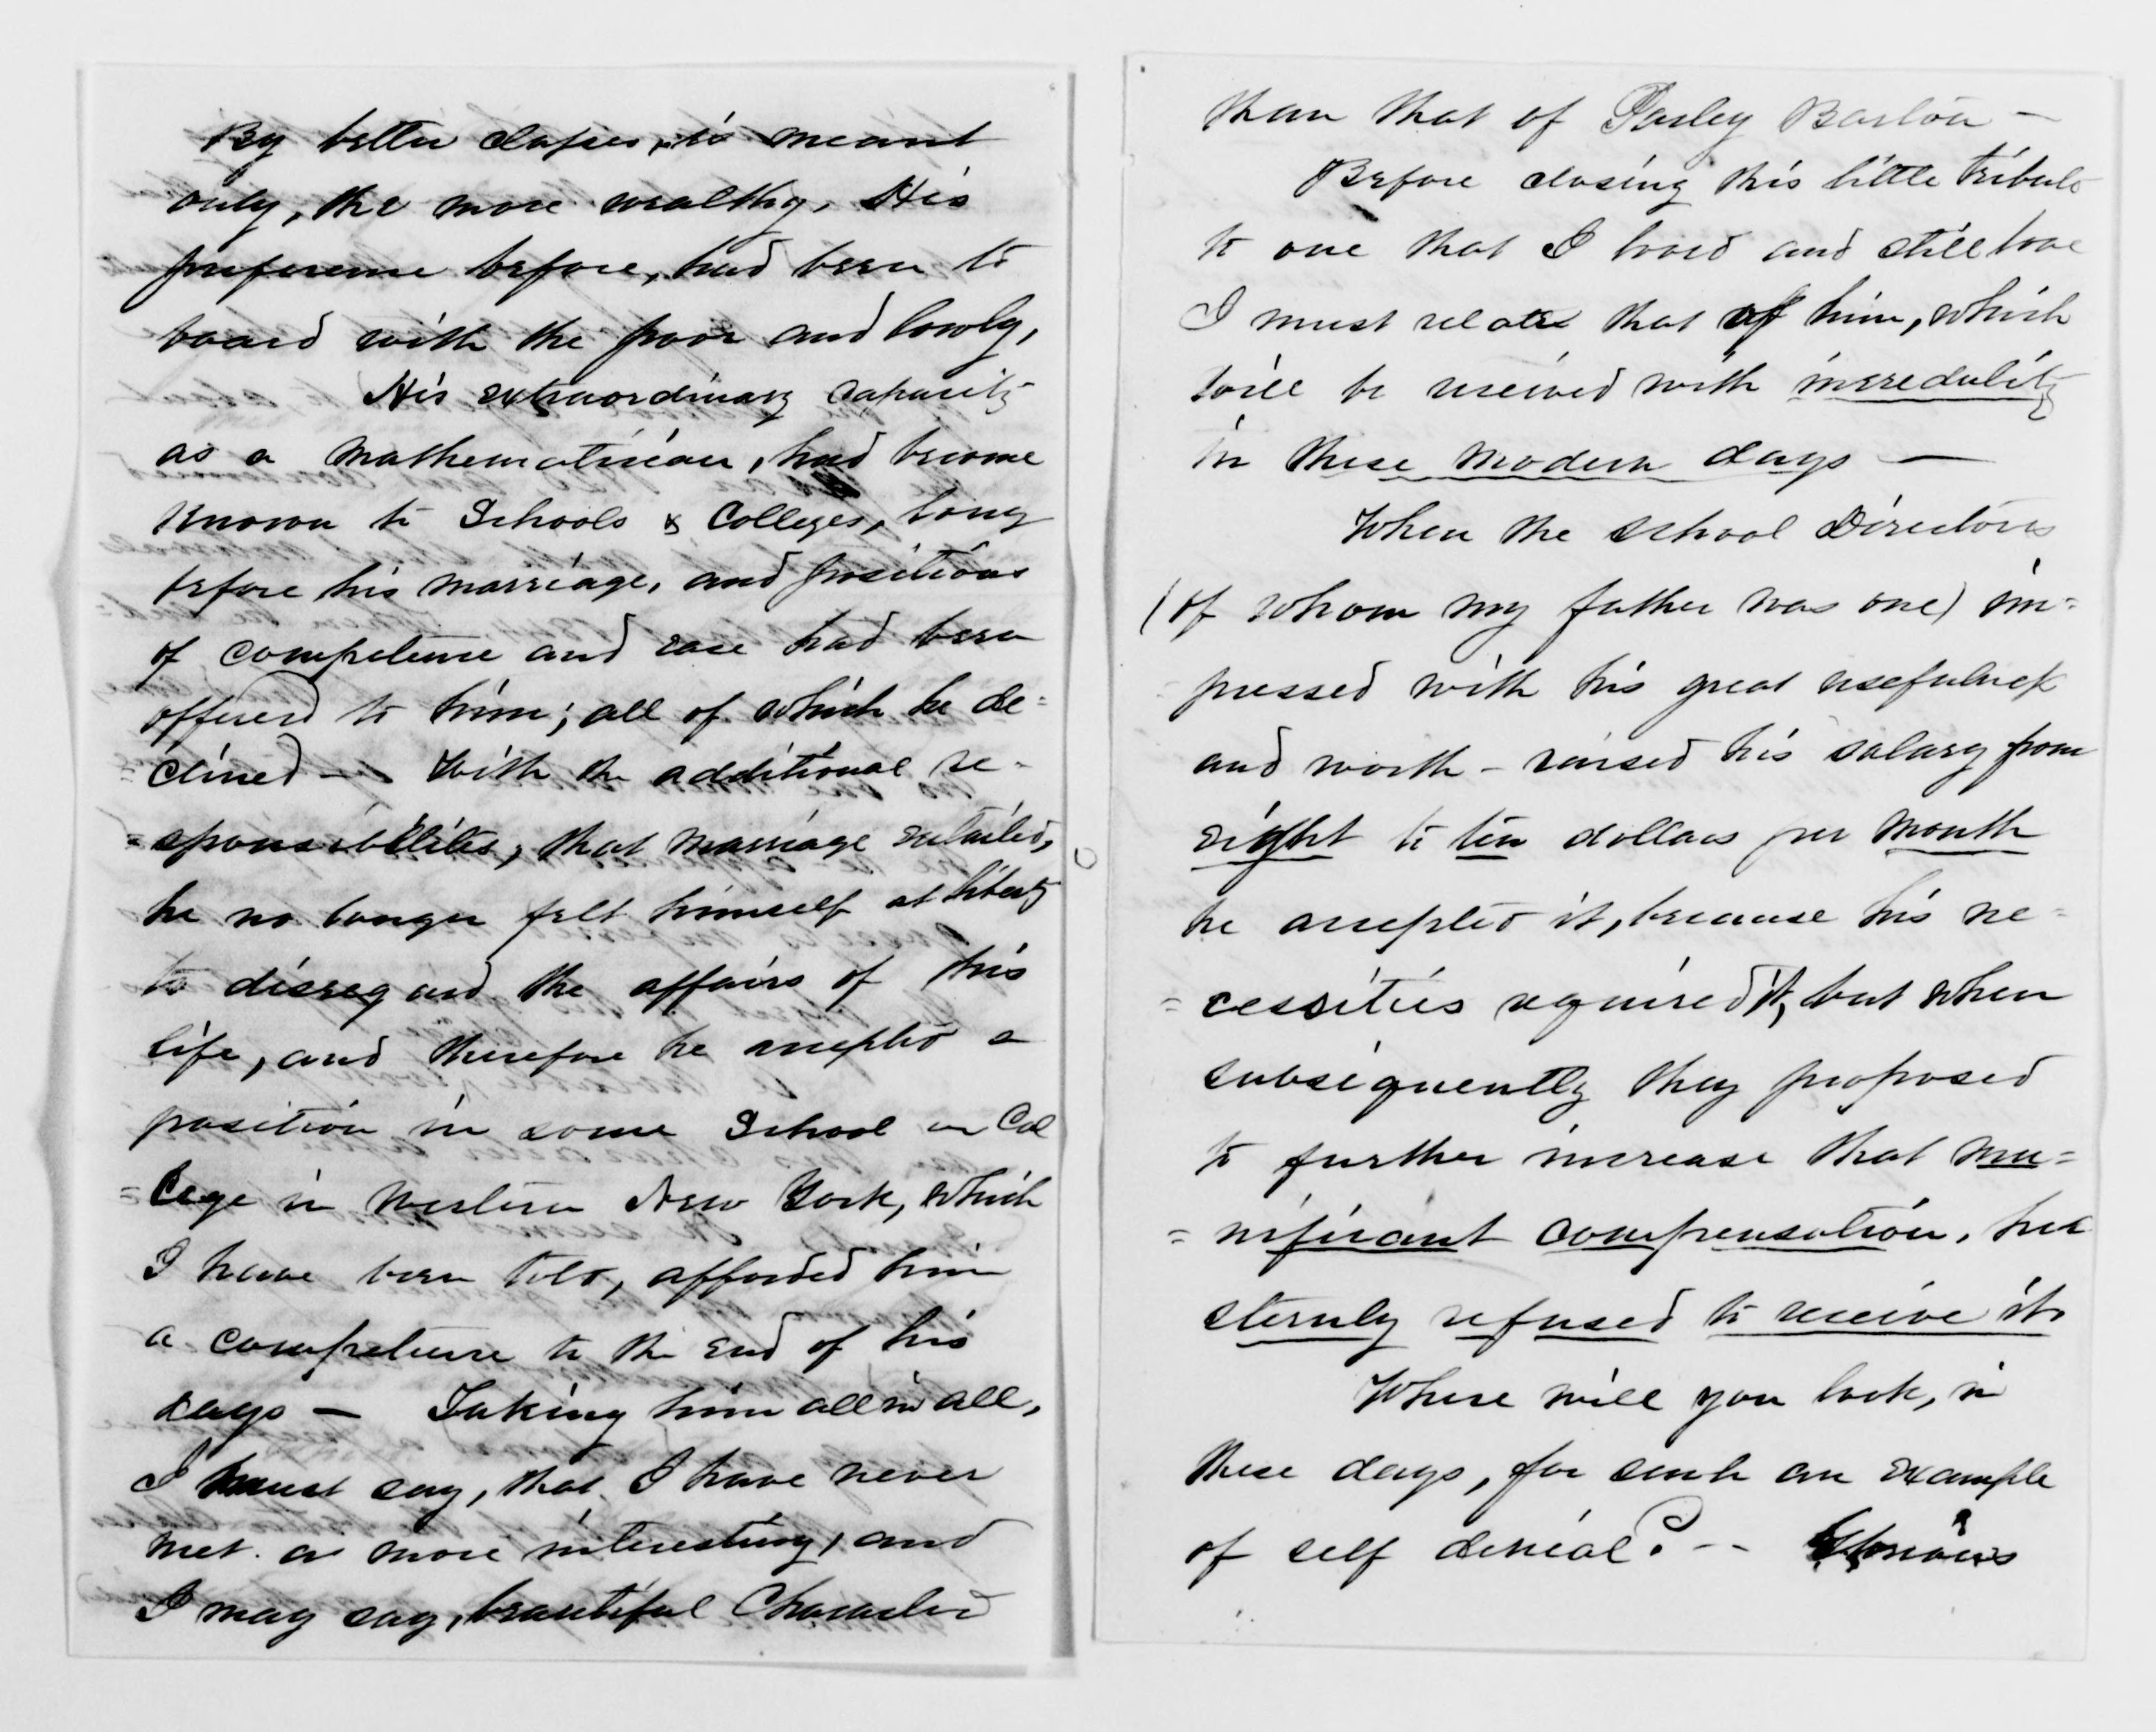 By better classes, is meant
only, the more wealthy. His
preference before, had been to
board with the poor and lowly,
His extraordinary capacity
as a mathematician, had become
known to Schools & Colleges, long
before his marriage, and positions
of competence and ease had been
offered to him; all of which he de=
=clined — With the additional re-
=sponsibilities, that marriage entailed,
he no longer felt himself at liberty
to disregard the affairs of this
life, and therefore he accepted a
position in some School or Col
=lege in western New York, which
I have been told, afforded him
a competence to the end of his
days — Taking him all in all,
I must say, that I have never
met a more interesting, and
I may say, beautiful Character
than that of Parley Barton —
Before closing this little tribute
to one that I loved and still love
I must relate that of him, which
will be received with incredulity
in these modern days —
When the school Directors
(of whom my father was one) im=
pressed with his great usefulness
and worth — raised his salary from
eight to ten dollars per month
he accepted it, because his ne=
=cessities required it, but when
subsequently they proposed
to further increase that mu=
=nificant compensation, he
sternly refused to receive it.
Where will you look, in
these days, for such an example
of self denial? --